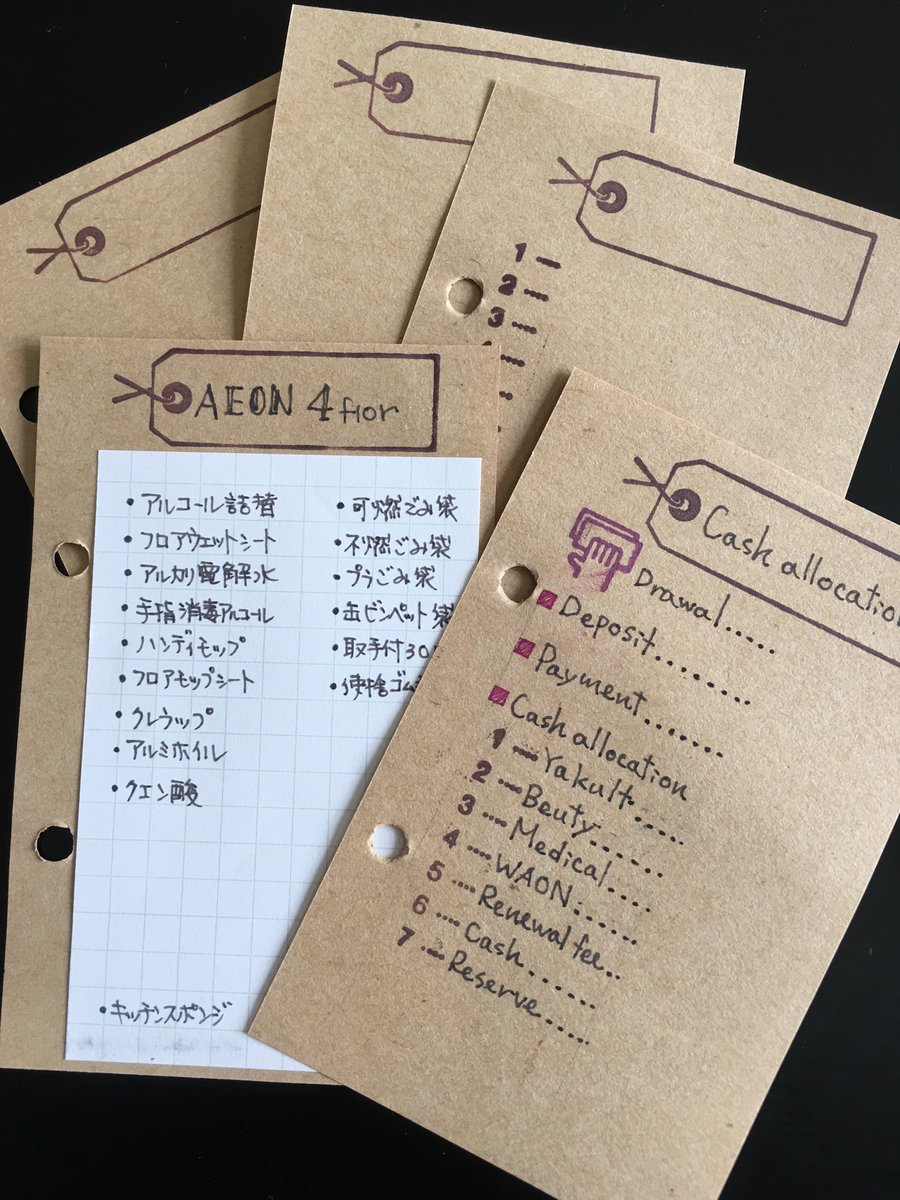 1
2
3
AEON 4 flor
・アルコール詰替
・フロアウェットシート
・アルカリ電解水
・手指消毒アルコール
・ハンディモップ
・フロアモップシート
・クレラップ
・アルミホイル
・クエン酸
・キッチンスポンジ
・可燃ごみ袋
・不燃ごみ袋
・プラごみ袋
・缶ビンペット袋
・取手付30
・使捨ゴム
Cash allocation
Drawal.....
Deposit.........
Payment........
Cash allocation
1 Yakult.....
2 Beuty......
3 Medical....
4 WAON:......
5 Renewal fee..
6 Cash.......
7 Reserve.....